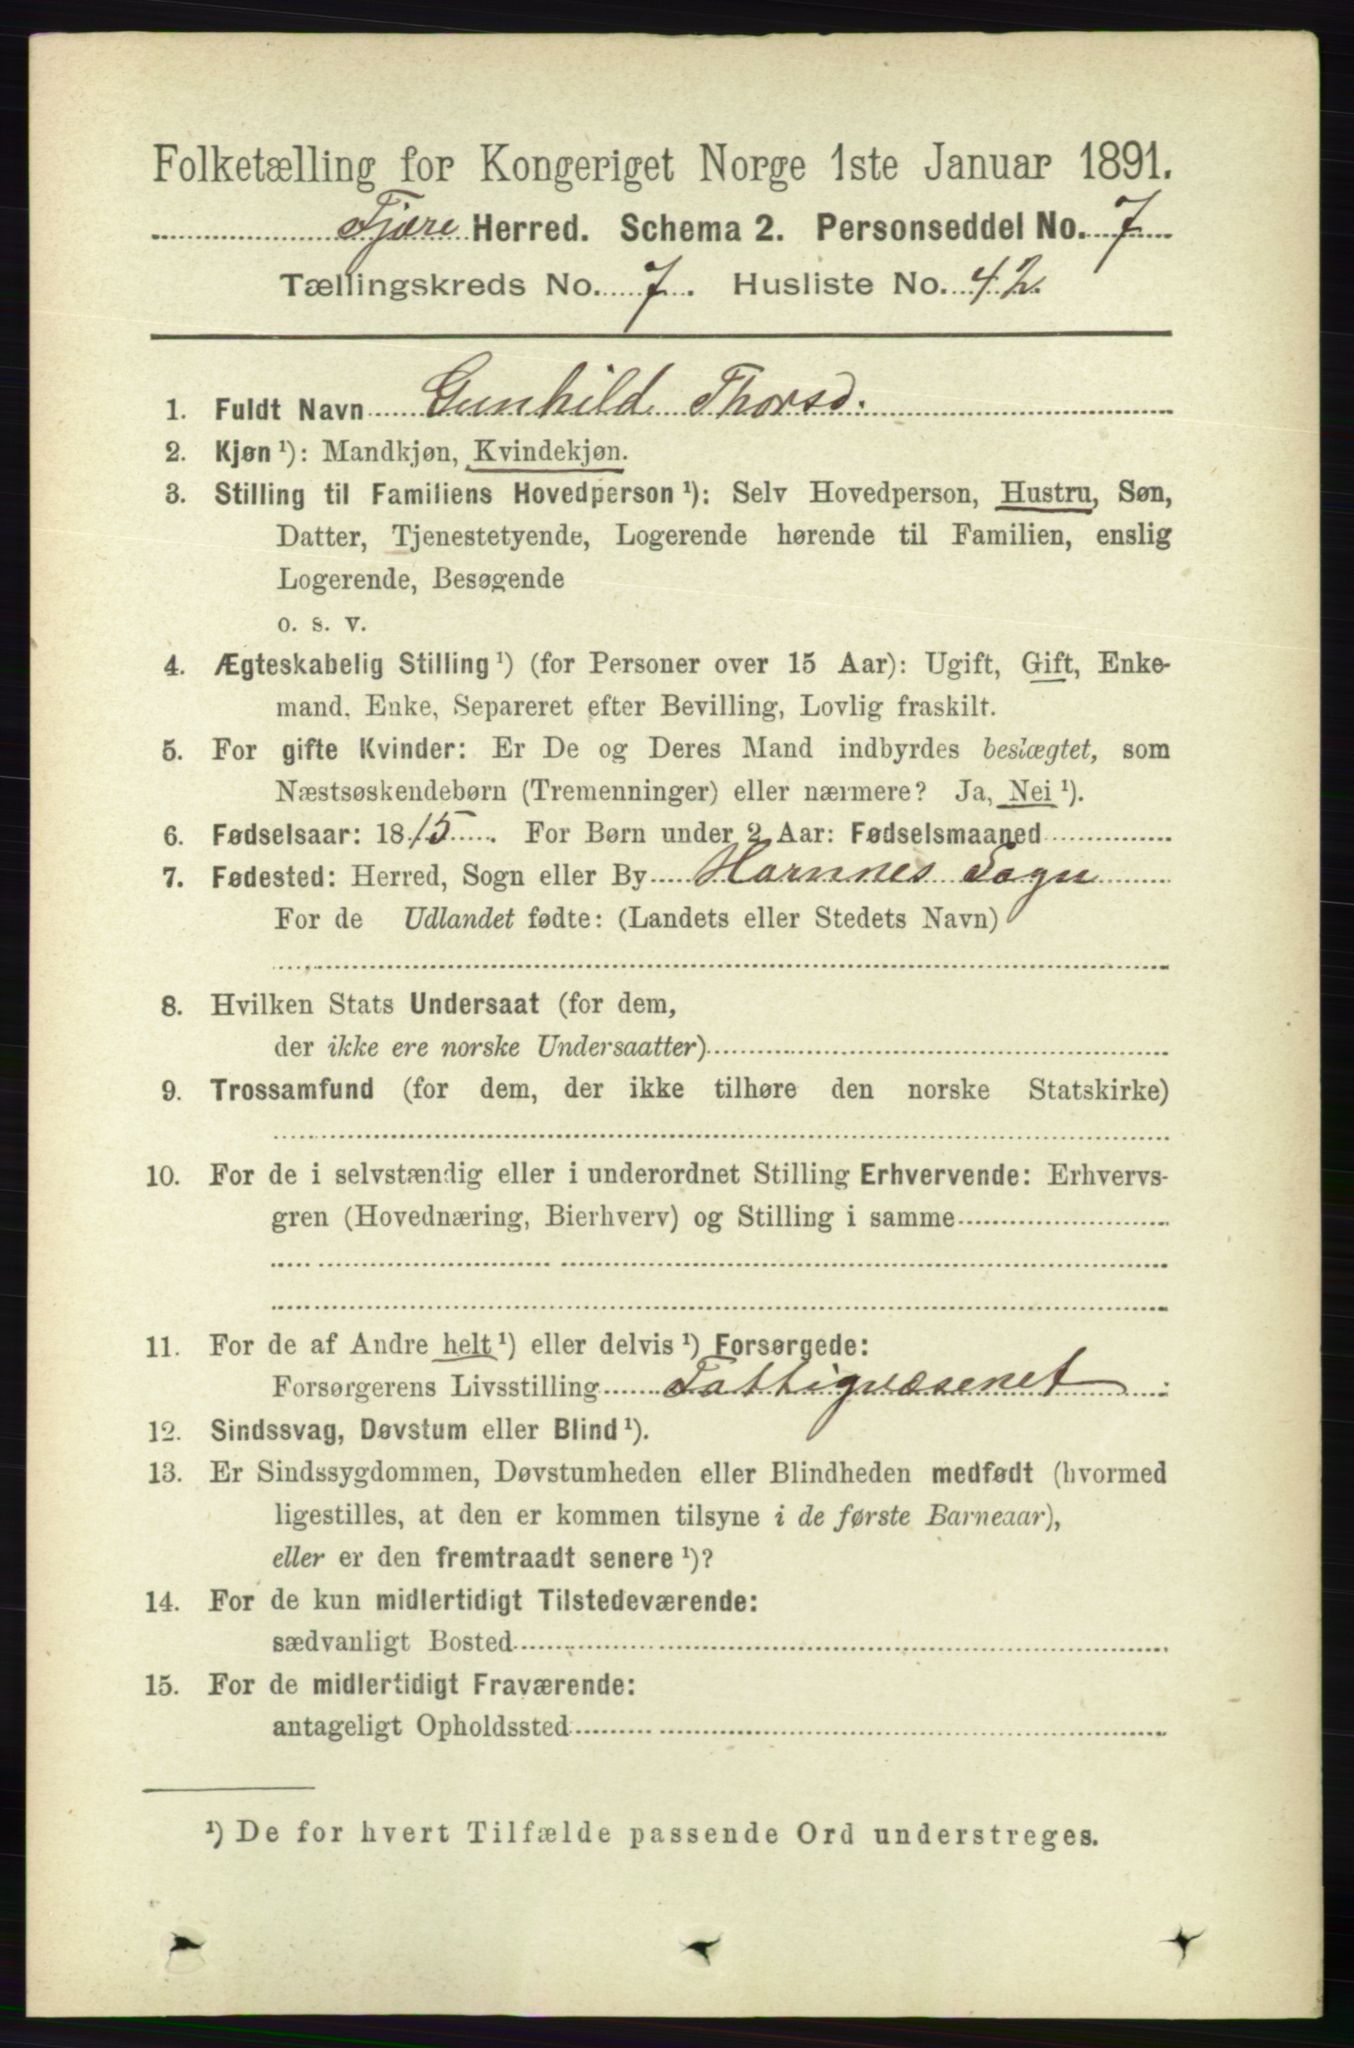 Folketælling for Kongeriget Norge 1ste Januar 1891.
Fjære Herred. Schema 2. Personseddel No. 7
Tællingskreds No. 7. Husliste No. 42.
1. Fuldt Navn Gunhild Thorsd.
2. Kjøn ¹): Mandkjøn, Kvindekjøn.
3. Stilling til Familiens Hovedperson ¹): Selv Hovedperson, Hustru, Søn,
Datter, Tjenestetyende, Logerende hørende til Familien, enslig
Logerende, Besøgende
o. s. v.
4. Ægteskabelig Stilling ¹) (for Personer over 15 Aar): Ugift, Gift, Enke-
mand, Enke, Separeret efter Bevilling, Lovlig fraskilt.
5. For gifte Kvinder: Er De og Deres Mand indbyrdes beslægtet, som
Næstsøskendebørn (Tremenninger) eller nærmere? Ja, Nei ¹).
6. Fødselsaar: 1815. For Børn under 2 Aar: Fødselsmaaned
7. Fødested: Herred, Sogn eller By Hornnes Sogn
For de Udlandet fødte: (Landets eller Stedets Navn)
8. Hvilken Stats Undersaat (for dem,
der ikke ere norske Undersaatter)
9. Trossamfund (for dem, der ikke tilhøre den norske Statskirke)
10. For de i selvstændig eller i underordnet Stilling Erhvervende: Erhvervs-
gren (Hovednæring, Bierhverv) og Stilling i samme
11. For de af Andre helt ¹) eller delvis ¹) Forsørgede:
Forsørgerens Livsstilling Fattigvæsenet
12. Sindssvag, Døvstum eller Blind ¹).
13. Er Sindssygdommen, Døvstumheden eller Blindheden medfødt (hvormed
ligestilles, at den er kommen tilsyne i de første Barneaar),
eller er den fremtraadt senere ¹)?
14. For de kun midlertidigt Tilstedeværende:
sædvanligt Bosted
15. For de midlertidigt Fraværende:
antageligt Opholdssted
¹) De for hvert Tilfælde passende Ord understreges.